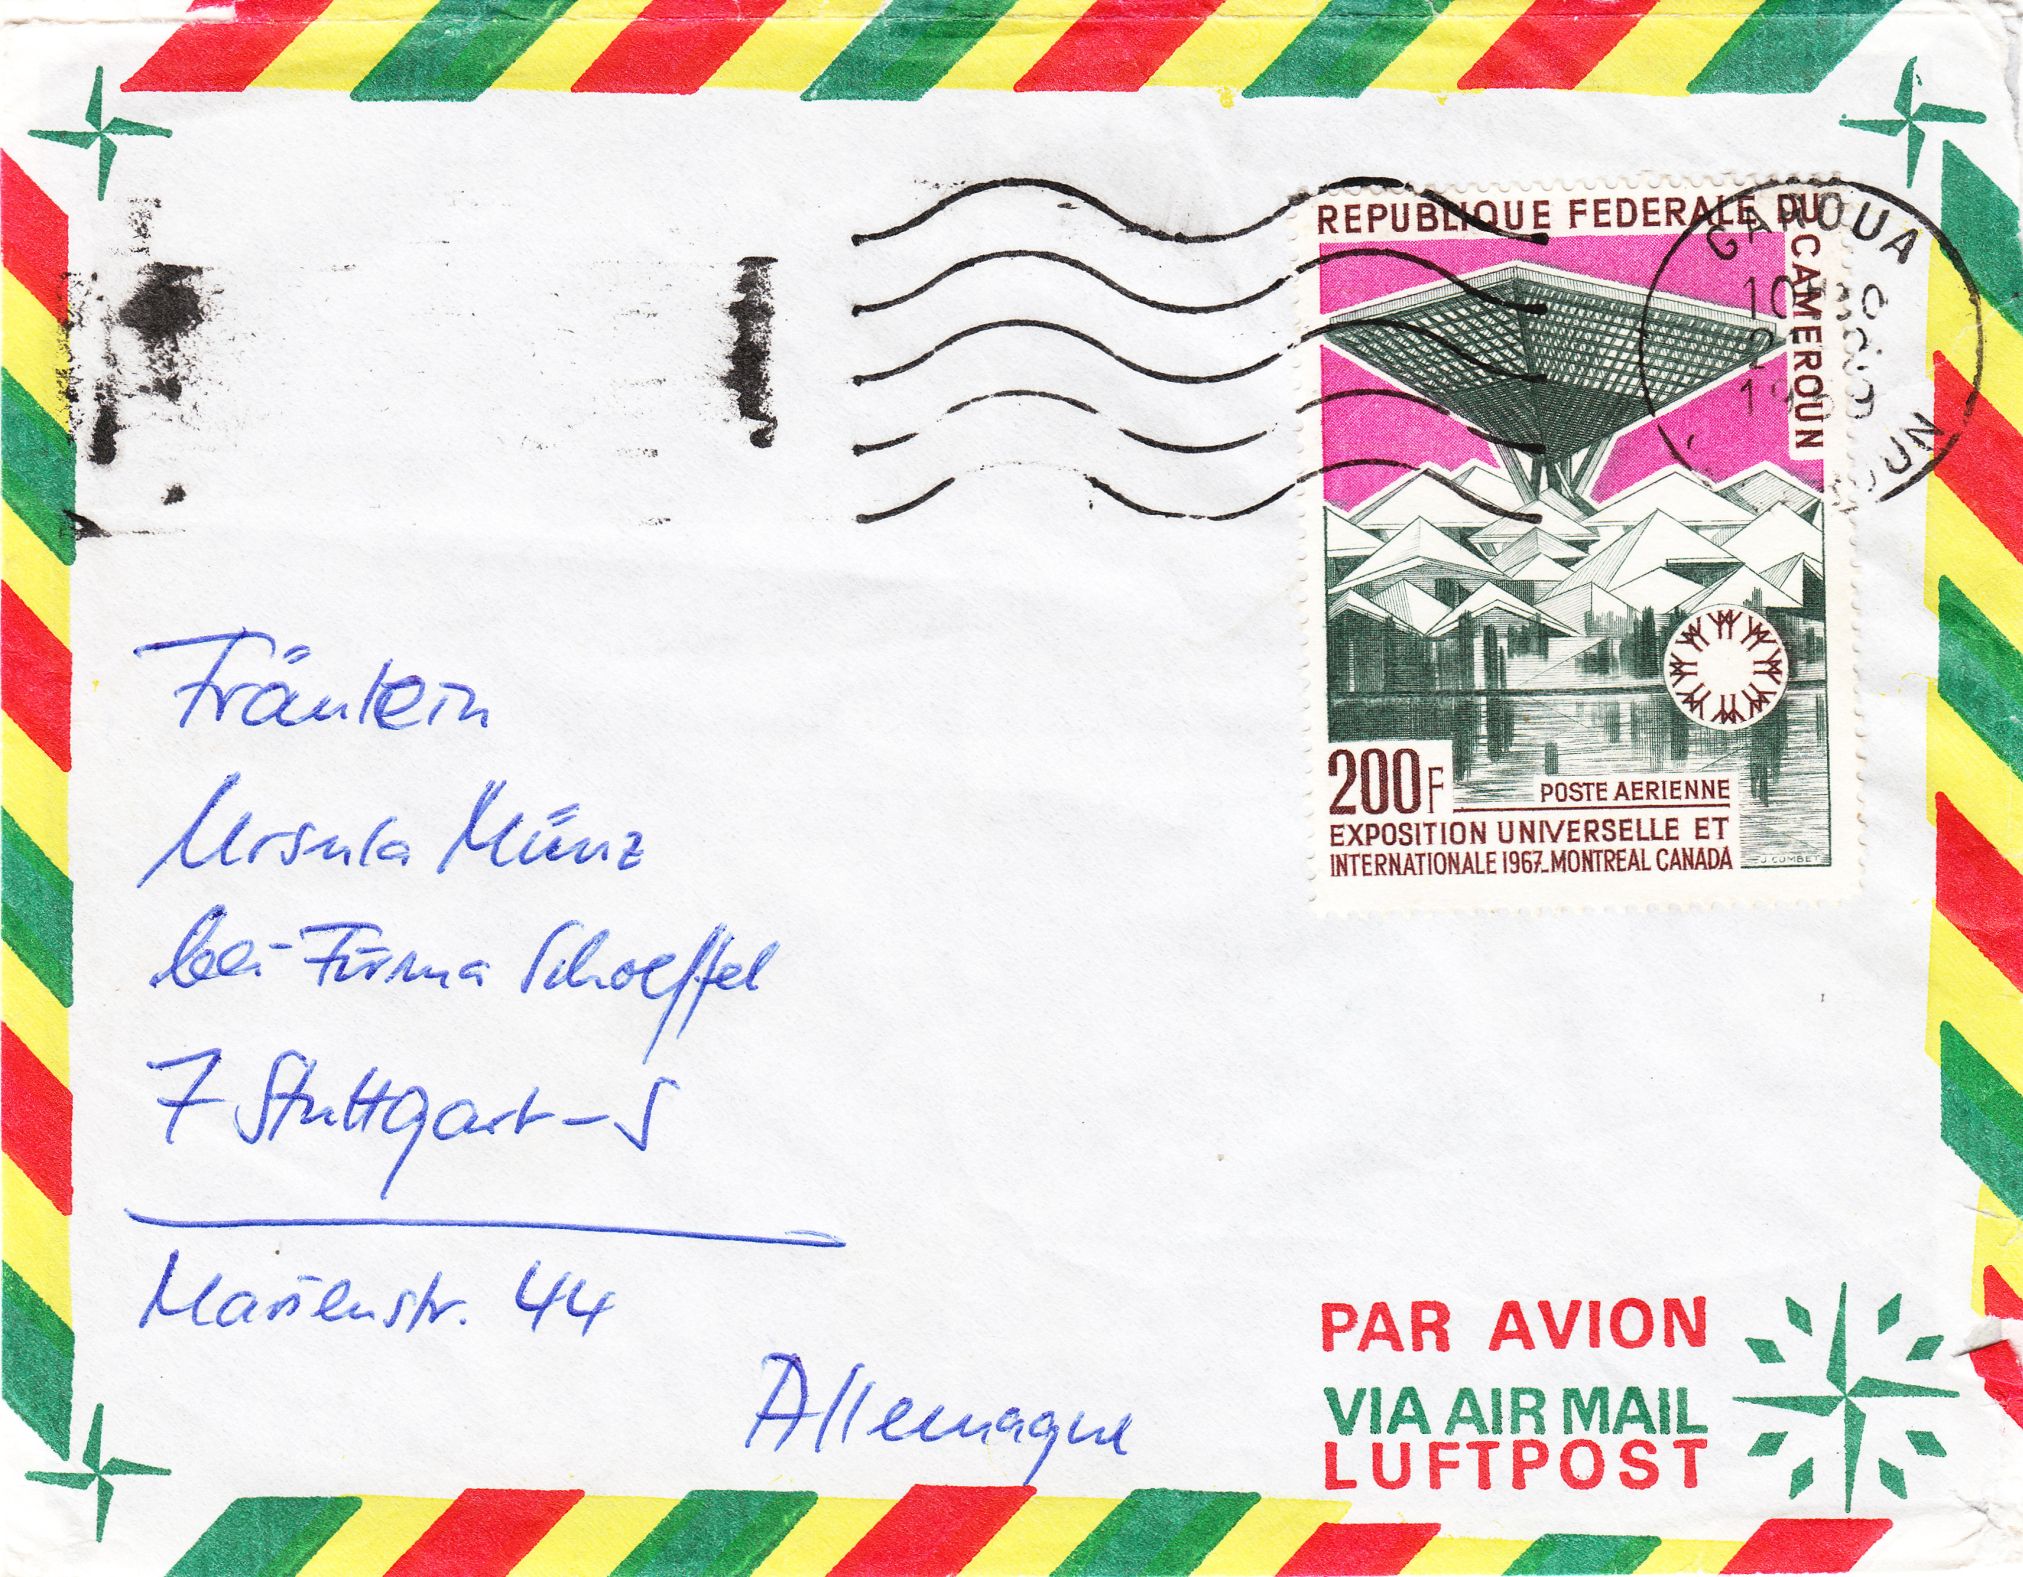 REPUBLIQUE FEDERALE DU CAMEROUN
GAROUA
200F
POSTE AERIENNE
EXPOSITION UNIVERSELLE ET
INTERNATIONALE 1967_MONTREAL CANADA
J COMBET
Fräulein
Ursula Münz
bei Firma Schoeffel
7 Stuttgart-S
Marienstr. 44
Allemagne
PAR AVION
VIA AIR MAIL
LUFTPOST